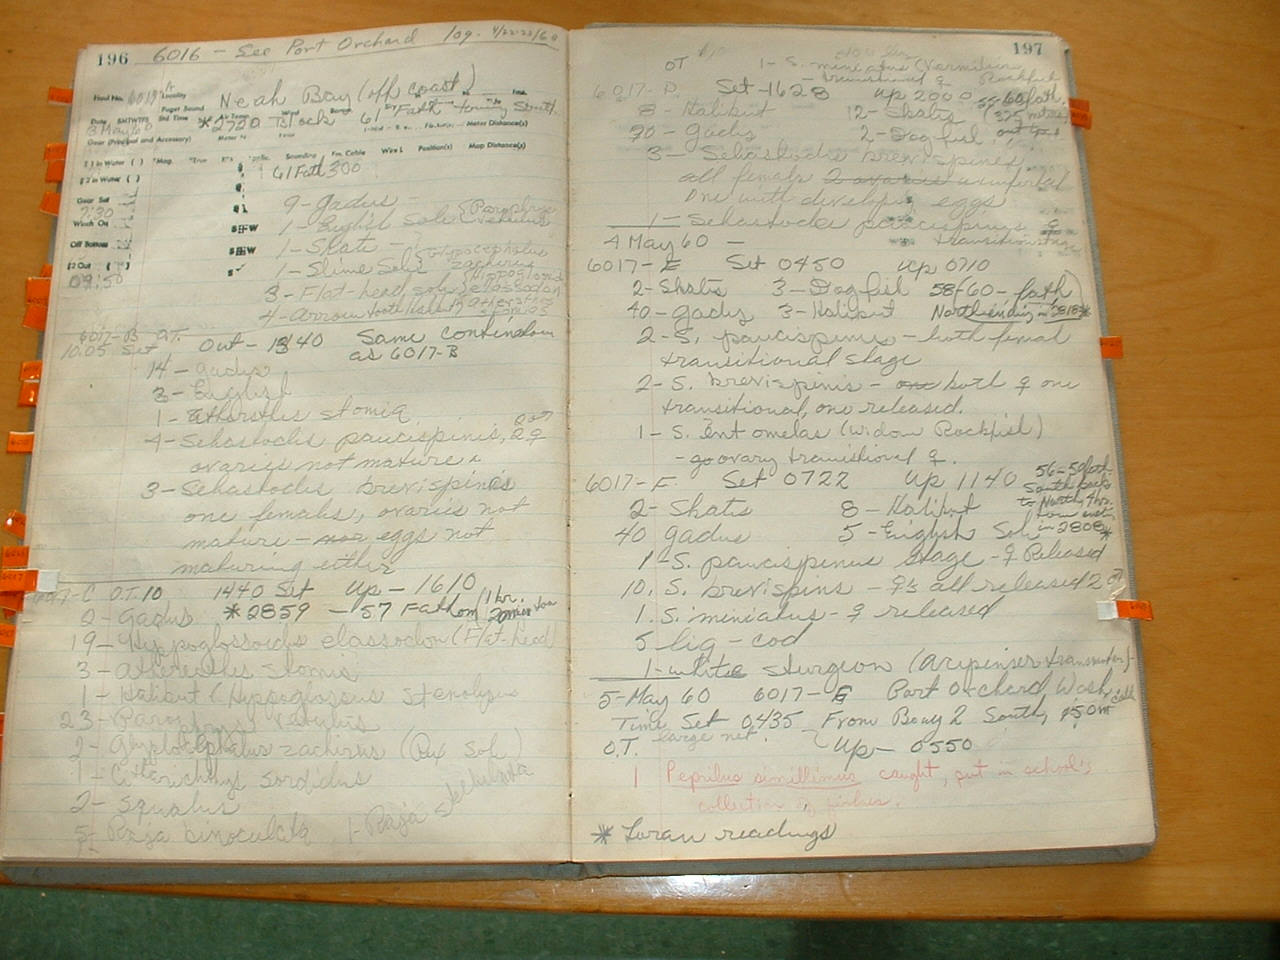 196 6016 - See Port Orchard log. 4/22-23/60
Haul No. Locality
Neah Bay (off coast)
Puget Sound
Date SMTWTFS Std Time
3 May 60
*2720 61 Fath towing South
Gear (Principal and Accessory) Meter Distance(s)
# 1 in Water ( ) °Mag. °True Sounding Fm. Cable Wire L Position(s) Map Distance(s)
# 2 in Water ( )
61 Fath 300
Gear Set
7:30
9 - Gadus -
Winch On
1 - English Sole {Parophrys vetulus
Off Bottom
1 - Skate -
# 2 Out ( )
1 - Slime Sole {Glyptocephalus zachirus
09:50
3 - Flat-head sole {Hippoglossoides elassodon
4 - Arrowtooth Halibut {atheresthes stomias
6017-B OT.
10:05 Set Out - 1340 Same contination
as 6017-B
14 - Gadus
3 - English
1 - Atheresthes stomia
4 - Sebastodes paucispinis, 2♂ 2♀
ovaries not mature
3 - Sebastodes brevispinis
one females, ovaries not
mature - nor eggs not
maturing either
6017-C O.T. 10 1440 Set Up - 1610
2 - Gadus *2859 - 57 Fathom / 1 hr.
19 - Hypoglossoides elassodon (Flat-head
3 - Atheresthes stomis
1 - Halibut (Hippoglossus stenolepis
23 - Parophrys vetulus
2 - Glyptocephalus zachirus (Rex Sole)
1 - Citharichthys sordidus
2 - Squalus
5 - Raja binoculata 1 - Raja stellulata
197
OT 1 - S. miniatus (Vermilion Rockfish
transitional ♀
6017-D. Set - 1628 Up 2000 55-60 fath.
8 - Halibut 12 - Skates
30 - Gadus 2 - Dogfish
3 - Sebastodes brevispines
all female 2 ovaries
One with develop eggs
1 - Sebastodes paucispinus ♀
transition stage
4 May 60 -
6017-E Set 0450 Up 0710
2 - Skates 3 - Dogfish 58-60 - fath)
40 - Gadus 3 - Halibut North ending in 2818*
2 - S. paucispinus - both femal
transitional stage
2 - S. brevispinis - one both ♀ one
transitional, one released.
1 - S. Entomelas (Widow Rockfish)
- go ovary transitional ♀.
6017-F. Set 0722 Up 1140 56-59 fath.
2 - Skates 8 - Halibut
to North, 4 hr.
40 Gadus 5 - English Sole in 2808*
1 - S. paucispinus stage - ♀ Released
10. S. brevispins - ♀s all released 2 ♂
1. S. miniatus - ♀ released
5 lig - cod
1 - white sturgeon (Acipenser transmontan)
5 - May 60 6017-G Port Orchard, Wash.
Time Set 0435 From Bouy 2 South,
large net.
O.T. Up - 0550
1 Peprilus simillimus caught, put in school's
collection of fishes.
* Loran readings